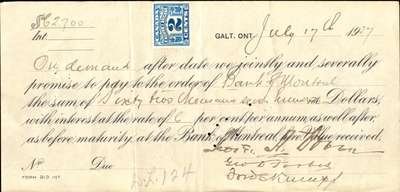 $62700
Int.
GALT, ONT. July 17th 1927
On demand after date we jointly and severally
promise to pay to the order of Bank of Montreal
the sum of Sixty two Thousand seven hundred Dollars,
with interest at the rate of 6 per cent per annum, as well after
as before maturity at the Bank of Montreal, for Value received.
CANADA
2
No. Due
Geo. D. Forbes
FORM
D.L. 124